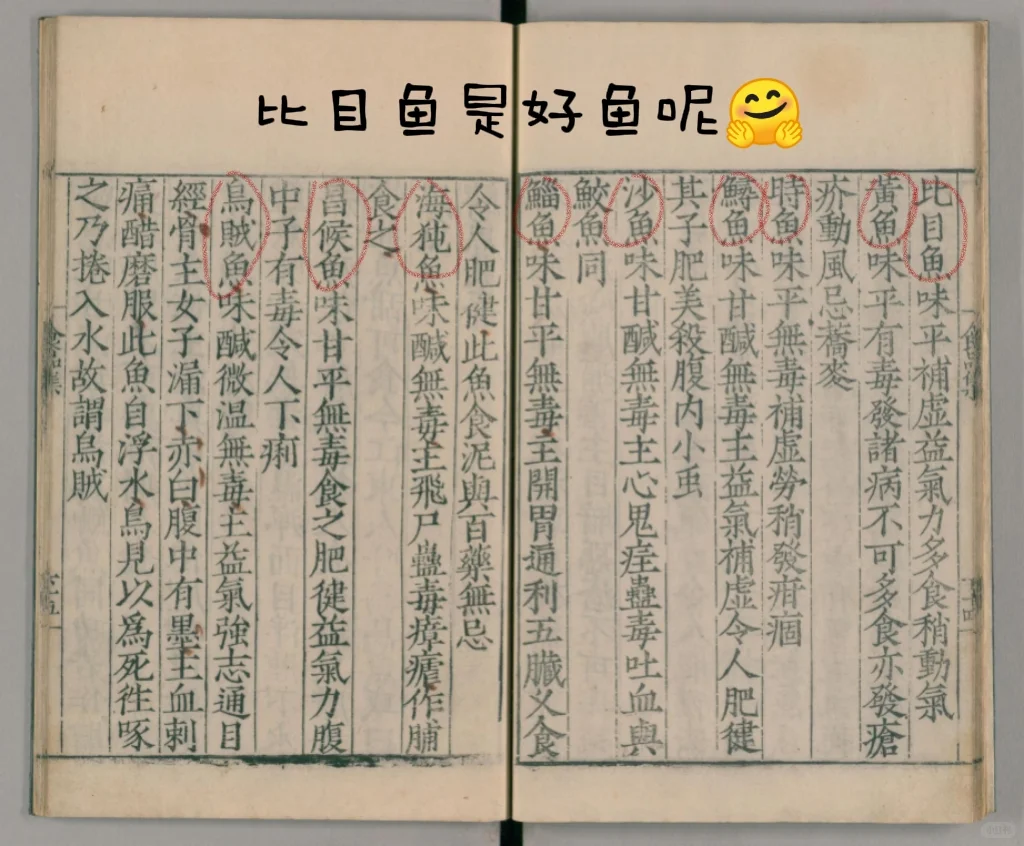 比目鱼是好鱼呢🤗
比目魚味平補虚益氣力多食稍動氣
黃魚味平有毒發諸病不可多食亦發瘡
疥動風忌蕎麥
時魚味平無毒補虚勞稍發疳痼
鱘魚味甘鹹無毒主益氣補虚令人肥健
其子肥美殺腹内小䖝
沙魚味甘鹹無毒主心鬼疰蠱毒吐血與
鮫魚同
鯔魚味甘平無毒主開胃通利五臟乂食
令人肥健此魚食泥與百藥無忌
海㹠魚味鹹無毒主飛尸蠱毒瘴瘧作脯
食之
昌候魚味甘平無毒食之肥健益氣力腹
中子有毒令人下痢
烏賊魚味鹹微温無毒主益氣強志通目
經骨主女子漏下赤白腹中有墨主血刺
痛醋磨服此魚自浮水烏見以為死徃啄
之乃捲入水故謂烏賊